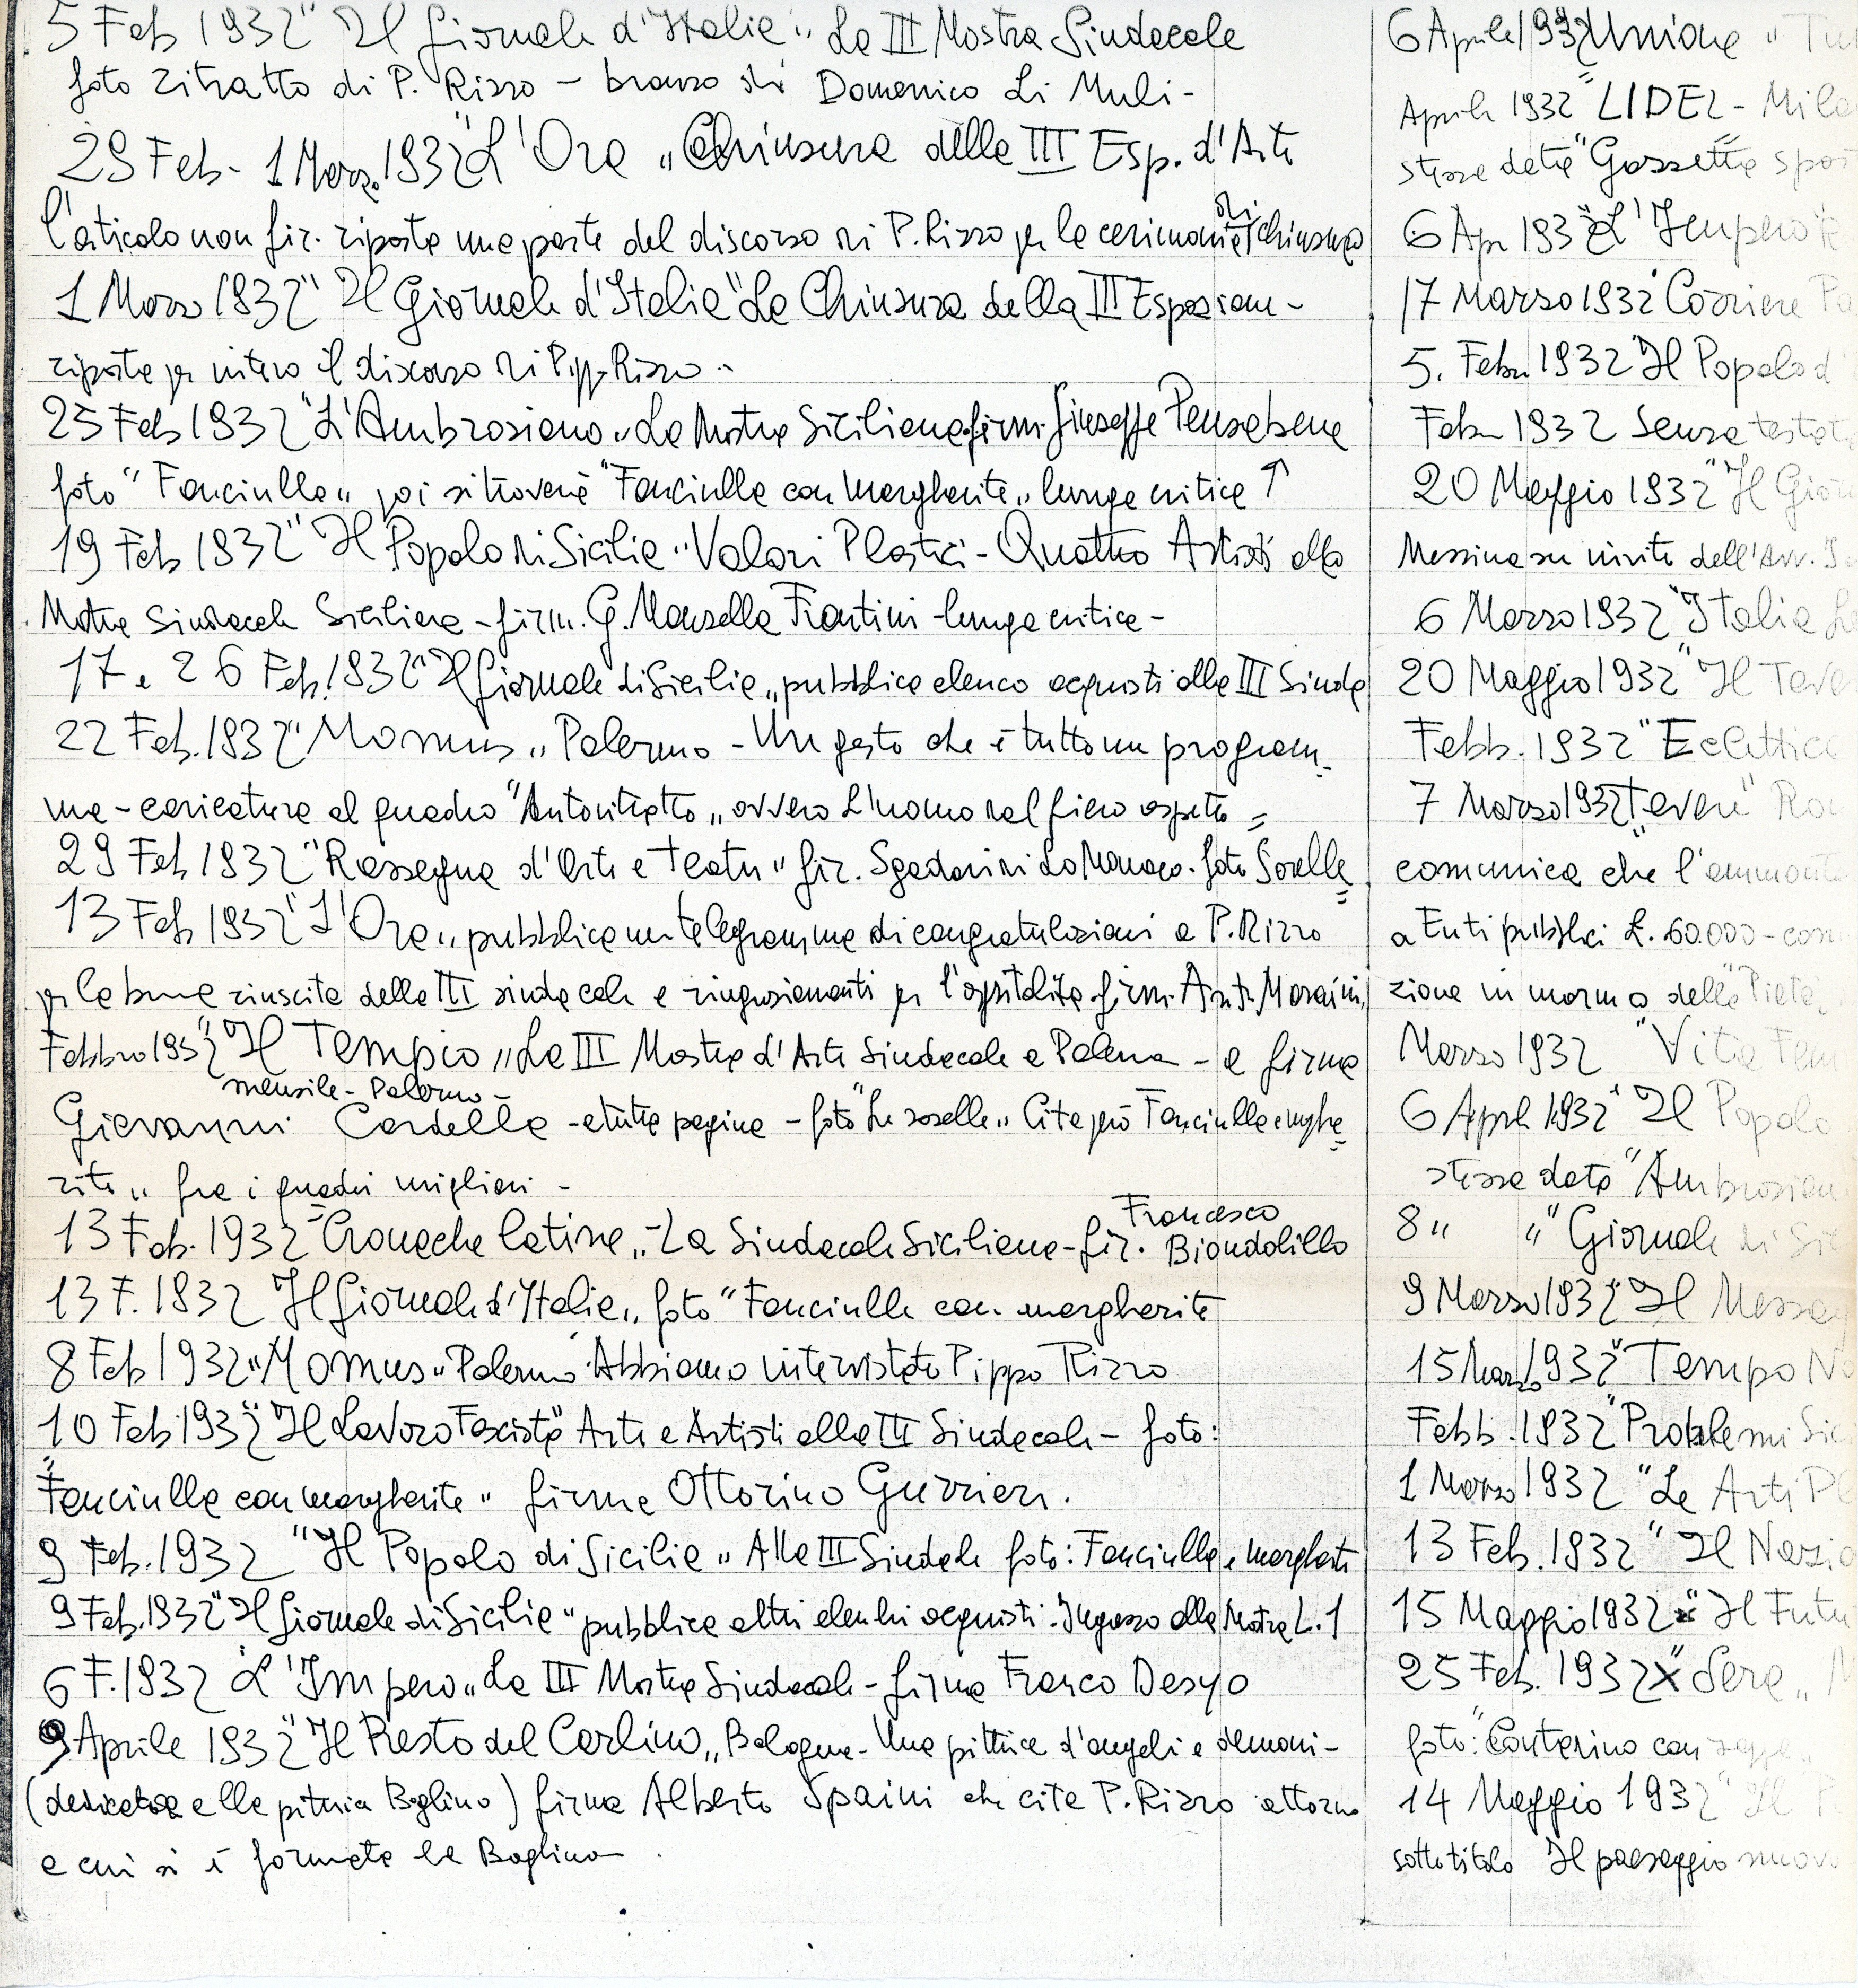 5 Feb 1932 "Il Giornale d'Italia" La III Mostra Sindacale
foto ritratto di P. Rizzo - bronzo di Domenico Li Muli -
29 Feb - 1 Marzo 1932 "L'Ora" Chiusura della III Esp. d'Arte
l'articolo non fir. riporta una parte del discorso di P. Rizzo per la cerimonia di chiusura
1 Marzo 1932 "Il Giornale d'Italia" La Chiusura della III Esposizion -
riporta per intero il discorso di Pippo Rizzo -
25 Feb 1932 "L'Ambrosiano" La Mostra Siciliana firm. Giuseppe Pensabene
foto "Fanciulla" poi si troverà "Fanciulla con margherite" lunga critica ↑
19 Feb 1932 "Il Popolo di Sicilia" Valori Plastici - Quattro Artisti alla
Mostra Sindacale Siciliana - firm. G. Manzella Frontini - lunga critica -
17 e 26 Feb. 1932 "Il Giornale di Sicilia" pubblica elenco acquisti alla III Sinda
22 Feb. 1932 "Momus" Palermo - Un gesto che è tutto un program
ma - caricatura al quadro "Autoritratto" ovvero L'uomo dal fiero aspetto =
29 Feb 1932 "Rassegna d'Arte e Teatri" fir. Sgadari di Lo Monaco - foto Sorelle =
13 Feb 1932 "L'Ora" pubblica un telegramma di congratulazioni a P. Rizzo
per la buona riuscita della III sindacale e ringraziamenti per l'ospitalità firm. Ant. Maraini
Febbraio 1932 "Il Tempio" La III Mostra d'Arte Sindacale a Palermo - a firma
mensile - Palermo -
Giovanni Cardella - a tutta pagina - foto "Le sorelle" Cita però Fanciulla e marghe
rite" fra i quadri migliori -
13 Feb. 1932 "Cronache latine" - La Sindacale Siciliana - fir. Francesco Biondolillo
13 F. 1932 Il Giornale d'Italia" foto "Fanciulla con margherite
8 Feb 1932 "Momus" Palermo Abbiamo intervistato Pippo Rizzo
10 Feb 1932 "Il Lavoro Fascista" Arte e Artisti alla III Sindacale - foto:
"Fanciulla con margherite" firma Ottorino Gurrieri.
9 Feb. 1932 "Il Popolo di Sicilia" Alla III Sindacale foto: Fanciulla e margherite
9 Feb. 1932 "Il Giornale di Sicilia" pubblica altri elenchi acquisti. Ingresso alla Mostra L. 1
6 F. 1932 L'Impero" La III Mostra Sindacale - firma Franco Desyo
9 Aprile 1932 "Il Resto del Carlino" Bologna - Una pittrice d'angeli e demoni -
(dedicatore alla pittrice Boglino) firma Alberto Spaini che cita P. Rizzo attorno
a cui si è formata la Boglino
6 Aprile 1932 Unione "
Aprile 1932 "LIDEL - Mila
stessa data "Gazzetta spor
6 Apr 1932 "L'Impero"
17 Marzo 1932 Corriere
5. Febr 1932 "Il Popolo d'
Febr 1932 Senza testata
20 Maggio 1932 "Il Gior
Messina su invito dell'Avv.
6 Marzo 1932 "Italia
20 Maggio 1932 "Il Teve
Febb. 1932 "Eclettica
7 Marzo 1932 Tevere" Ro
comunica che l'ammonta
a Enti pubblici L. 60.000 -
zione in marmo della "Pietà"
Marzo 1932 "Vita Fem
6 April 1932 "Il Popolo
stessa data "Ambrosian
8 " " "Giornale di Sic
9 Marzo 1932 "Il Messag
15 Marzo 1932 "Tempo
Febb. 1932 "Problemi Sic
1 Marzo 1932 "Le Arti Pl
13 Feb. 1932 "Il Nazio
15 Maggio 1932 "Il Futu
25 Feb. 1932 Sera"
foto: "Contadino con
14 Maggio 1932 "Il
sottotitolo Il paesaggio nuovo